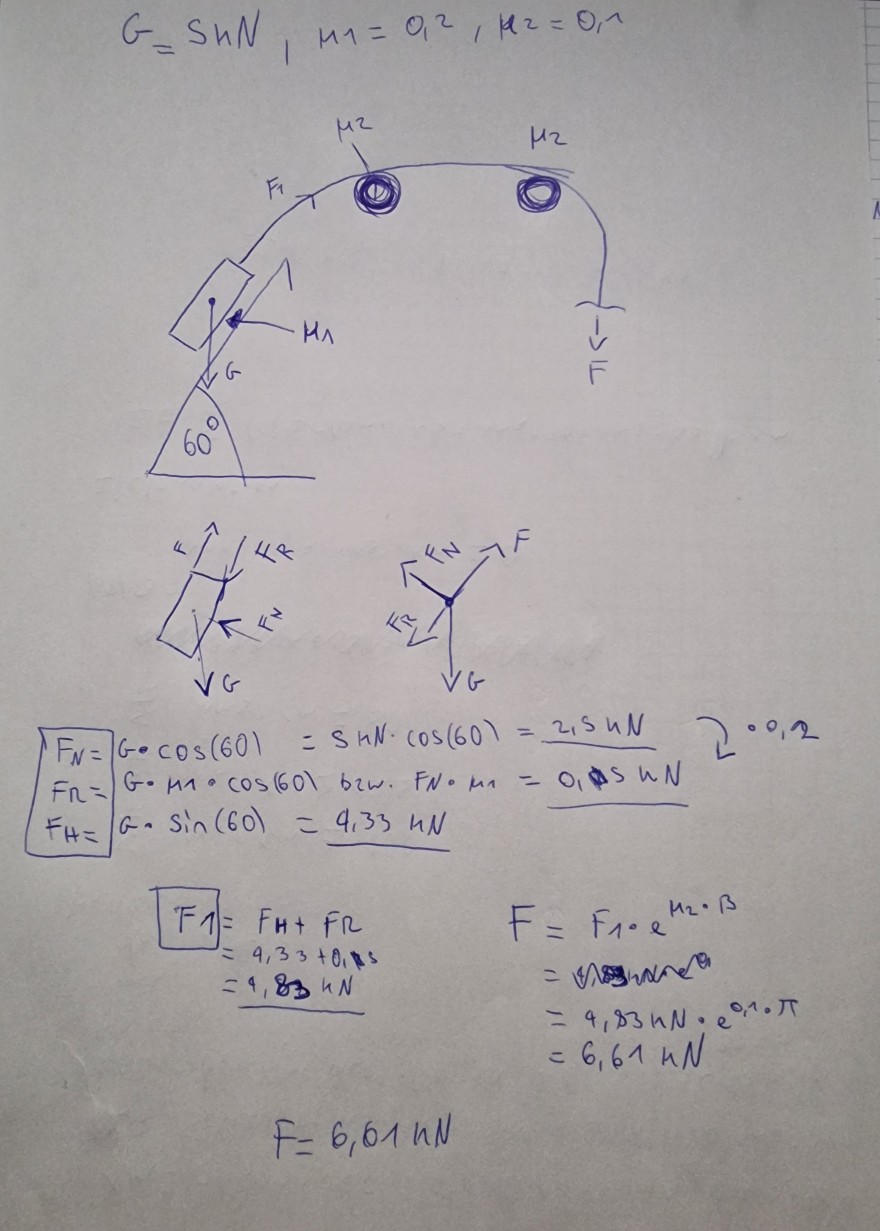 G = 5kN, μ1 = 0,2, μ2 = 0,1
μ2
μ2
F1
μ1
G
F
60°
F
FR
FN
G
FN
F
FR
G
FN = G • cos(60) = 5kN · cos(60) = 2,5 kN • 0,2
FR = G • μ1 • cos(60) bzw. FN • μ1 = 0,5 kN
FH = G • sin(60) = 4,33 kN
F1 = FH + FR
= 4,33 + 0,5
= 4,83 kN
F = F1 • e^μ2 • β
=
= 4,83kN • e^0,1 • π
= 6,61 kN
F = 6,61 kN